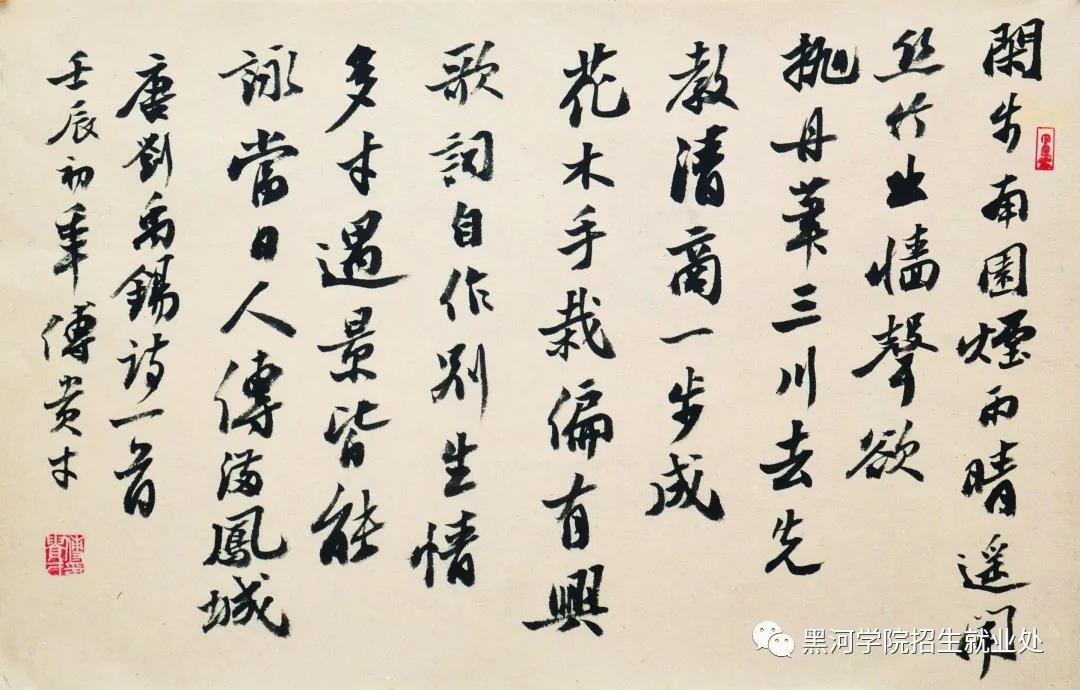 閑步南園煙雨晴遥聞
丝竹出牆聲欲
抛丹筆三川去先
教清商一步成
花木手栽偏有興
歌詞自作别生情
多才遇景皆能
詠當日人傳滿鳳城
唐劉禹錫詩一首
壬辰初傅贵才
黑河学院招生就业处